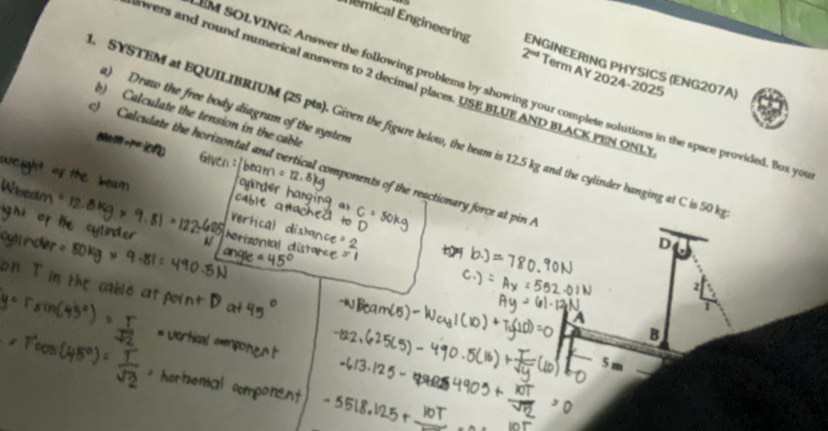 emical Engineering
ENGINEERING PHYSICS (ENG207A)
2nd Term AY 2024-2025
EM SOLVING: Answer the following problems by showing your complete solutions in the space provided. Box your
swers and round numerical answers to 2 decimal places. USE BLUE AND BLACK PEN ONLY.
1. SYSTEM at EQUILIBRIUM (25 pts). Given the figure below, the beam is 12.5 kg and the cylinder hanging at C is 50 kg:
a) Draw the free body diagram of the system
b) Calculate the tension in the cable
c) Calculate the horizontal and vertical components of the reactionary force at pin A
Given: beam = 12.5kg
cylinder hanging at C = 50kg
cable attached to D
vertical distance = 2
horizontal distance = 1
angle = 45°
weight of the beam
Wbeam = 12.5kg × 9.81 = 122.625 N
ght of the cylinder
cylinder = 50kg × 9.81 = 490.5N
on T in the cable at point D at 45°
y = T sin(45°) = T/√2 = vertical component
= T cos(45°) = T/√2 = horizontal component
b.) = 780.90N
c.) = Ax = 552.01N
Ay = 61.12N
-WBeam(5) - Wcyl(10) + Ty(10) = 0
-122.625(5) - 490.5(10) + T/√y (10) = 0
-613.125 - 4905 + 10T/√2 = 0
-5518.125 + 10T
10T
D
2
1
A
B
5 m